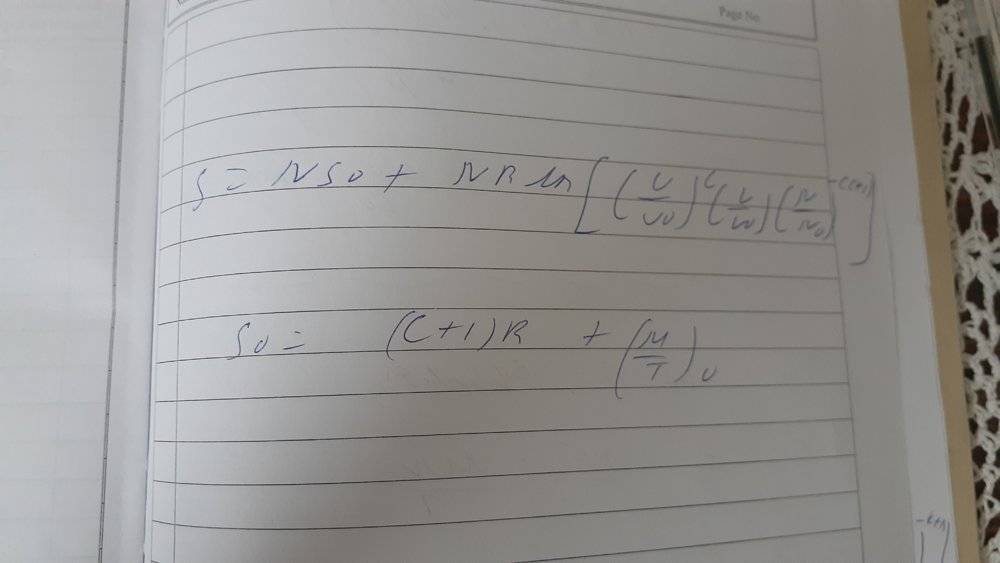 Page No.
S = NS₀ + NR ln [(U/U₀)^C (V/V₀) (N/N₀)^-(C+1)]
S₀ = (C+1)R + (μ/T)₀